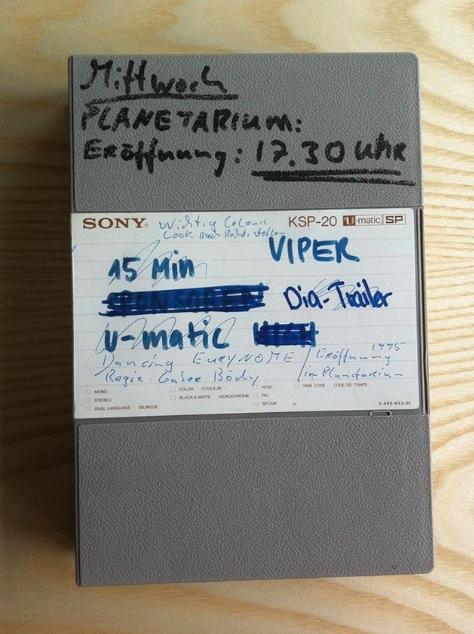 Mittwoch
PLANETARIUM:
Eröffnung: 17.30 UHR
SONY
Wichtig Colour
Lock nach Rechts stellen
KSP-20 U matic SP
VIPER
15 Min
SPONSOREN Dia-Trailer
U-matic
Dancing EURYNOME / Eröffnung 1995
Regie: Gabor Bódy / im Planetarium
MONO
STEREO
DUAL LANGUAGE BILINGUE
COLOR COULEUR
BLACK & WHITE MONOCHROME
NTSC
PAL
SECAM
TIME CODE CODE DE TEMPS